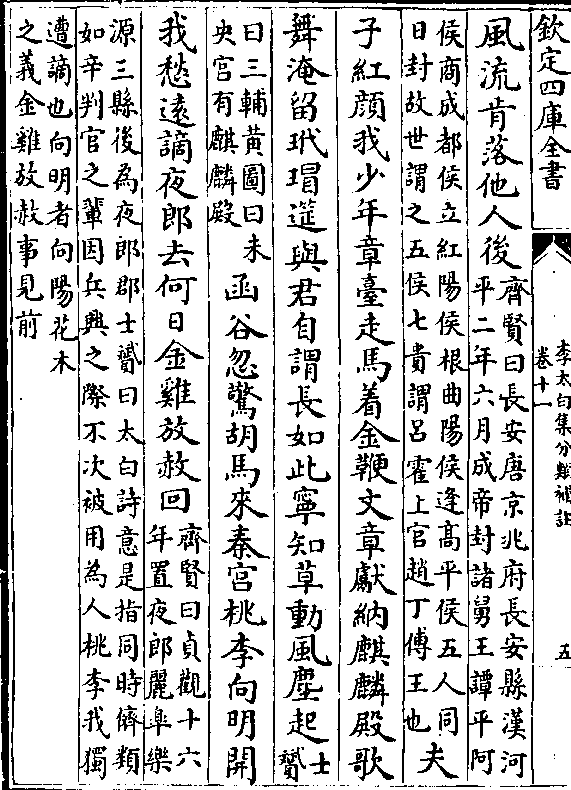 欽定四庫全書
李太白集分類補註
卷十一
五
風流肯落他人後
齊賢曰長安唐京兆府長安縣漢河
平二年六月成帝封諸舅王譚平阿
侯商成都侯立紅陽侯根曲陽侯逢髙平侯五人同
日封故世謂之五侯七貴謂呂霍上官趙丁傅王也
夫
子紅顔我少年章臺走馬着金鞭文章獻納麒麟殿歌
舞淹留玳瑁筵與君自謂長如此寧知草動風塵起
士
贇
曰三輔黄圖曰未
央宫有麒麟殿
函谷忽驚胡馬來秦宫桃李向明開
我愁逺謫夜郎去何日金雞放赦回
齊賢曰貞觀十六
年置夜郎麗臯樂
源三縣後為夜郎郡士贇曰太白詩意是指同時儕類
如辛判官之輩因兵興之際不次被用為人桃李我獨
遭謫也向明者向陽花木
之義金雞放赦事見前